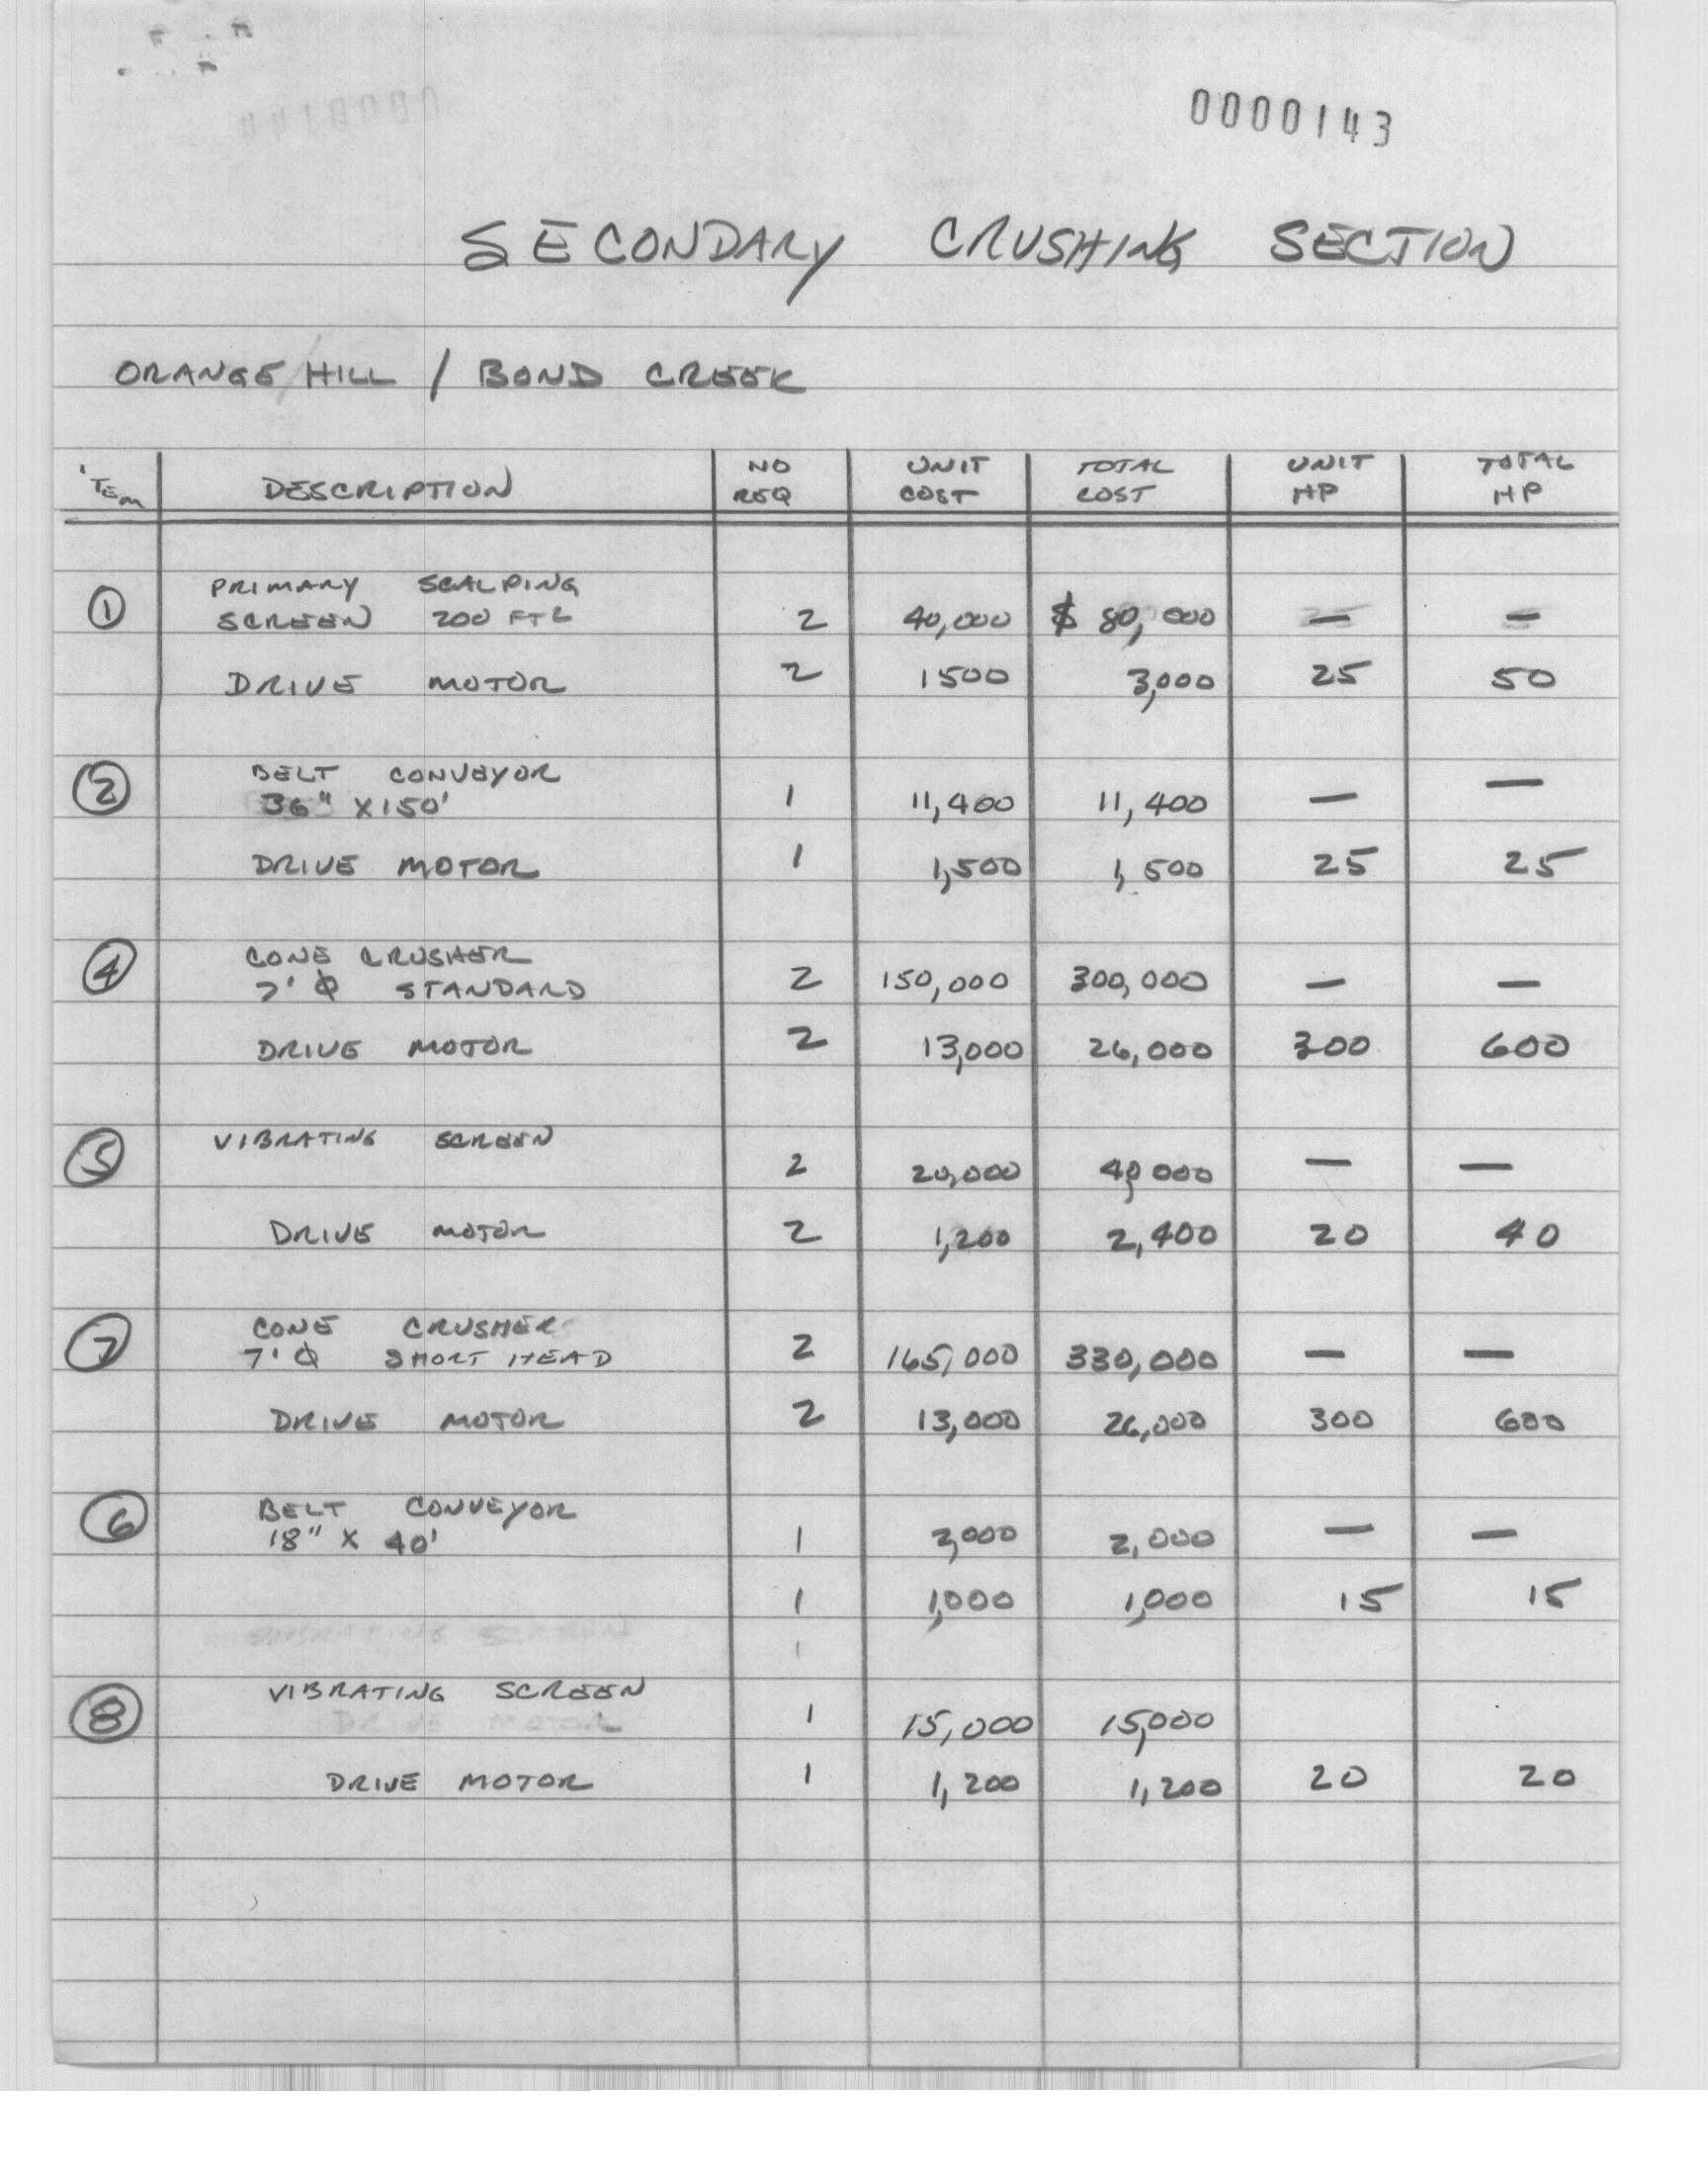 0000143
SECONDARY CRUSHING SECTION
ORANGE HILL / BOND CREEK
ITEM DESCRIPTION NO REQ UNIT COST TOTAL COST UNIT HP TOTAL HP
PRIMARY SCALPING
① SCREEN 200 FT2 2 40,000 $ 80,000 — —
DRIVE MOTOR 2 1500 3,000 25 50
② BELT CONVEYOR
36" X 150' 1 11,400 11,400 — —
DRIVE MOTOR 1 1,500 1,500 25 25
④ CONE CRUSHER
7' Φ STANDARD 2 150,000 300,000 — —
DRIVE MOTOR 2 13,000 26,000 300 600
⑤ VIBRATING SCREEN
2 20,000 40,000 — —
DRIVE MOTOR 2 1,200 2,400 20 40
⑦ CONE CRUSHER
7' Φ SHORT HEAD 2 165,000 330,000 — —
DRIVE MOTOR 2 13,000 26,000 300 600
⑥ BELT CONVEYOR
18" X 40' 1 2,000 2,000 — —
1 1,000 1,000 15 15
⑧ VIBRATING SCREEN
1 15,000 15,000
DRIVE MOTOR 1 1,200 1,200 20 20